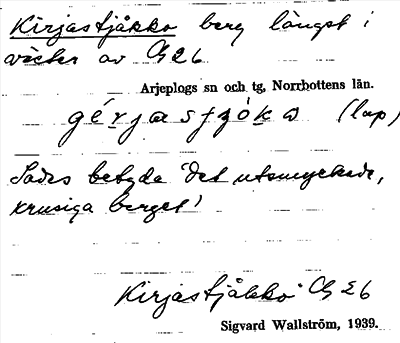 Kirjastjåkko berg längst i
väster av G26
Arjeplogs sn och tg, Norrbottens län.
(lap)
Sades betyda 'det utsmyckade,
krusiga berget'
Kirjastjåkko G26
Sigvard Wallström, 1939.